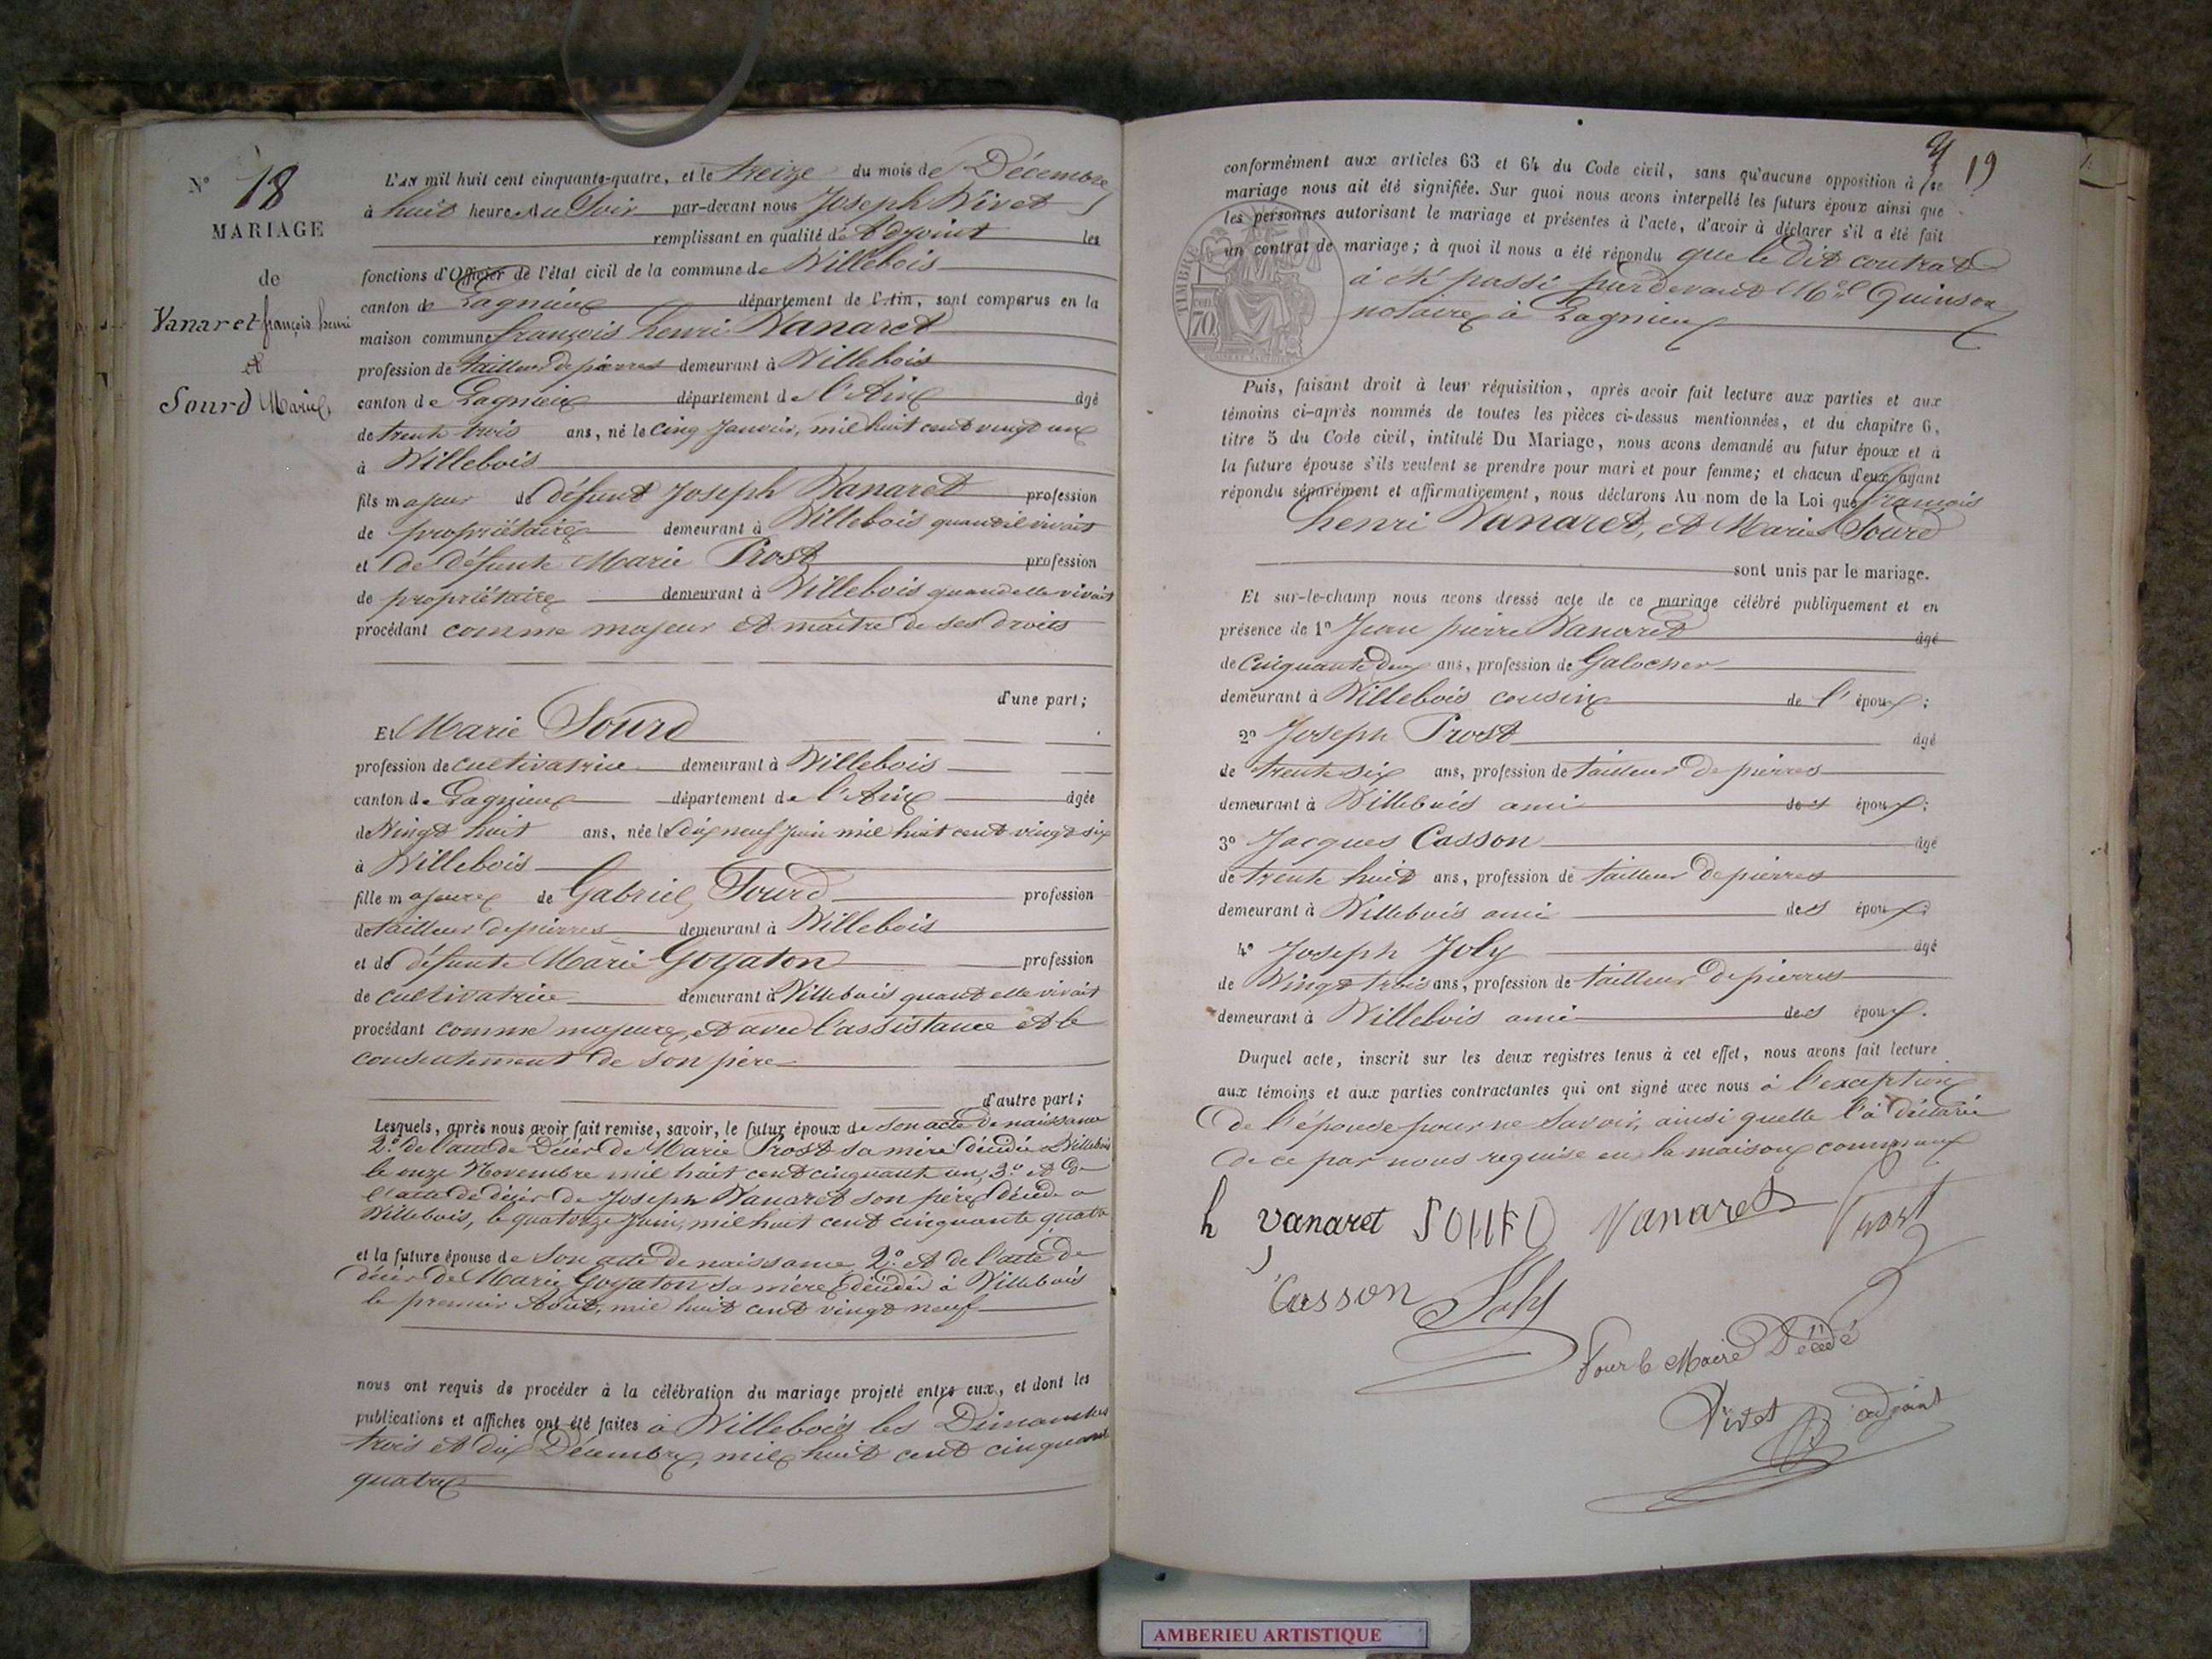 N° 18
MARIAGE
de
Vanaret françois henri
et
Sourd Marie
L'AN mil huit cent cinquante-quatre, et le treize du mois de Décembre
à huit heures du Soir par-devant nous Joseph Vivet
remplissant en qualité d'Adjoint les
fonctions d'Officier de l'état civil de la commune de Villebois
canton de Lagnieu département de l'Ain, sont comparus en la
maison commune françois henri Vanaret
profession de tailleur de pierres demeurant à Villebois
canton de Lagnieu département de l'Ain âgé
de trente trois ans, né le cinq Janvier, mil huit cent vingt un
à Villebois
fils majeur de défunt Joseph Vanaret profession
de propriétaire demeurant à Villebois quand il vivait
et de défunte Marie Prost profession
de propriétaire demeurant à Villebois quand elle vivait
procédant comme majeur et maître de ses droits
d'une part;
Et Marie Sourd
profession de cultivatrice demeurant à Villebois
canton de Lagnieu département de l'Ain âgée
de Vingt huit ans, née le dix neuf juin mil huit cent vingt six
à Villebois
fille majeure de Gabriel Sourd profession
de tailleur de pierres demeurant à Villebois
et de défunte Marie Goyaton profession
de cultivatrice demeurant à Villebois quant elle vivait
procédant comme majeure, et avec l'assistance et le
consentement de son père
d'autre part;
Lesquels, après nous avoir fait remise, savoir, le futur époux de son acte de naissance
2° de l'acte de Décès de Marie Prost sa mère décédée à Villebois
le onze Novembre mil huit cent cinquante un, 3° et de
l'acte de décès de Joseph Vanaret son père décédé a
Villebois, le quatorze Juin, mil huit cent cinquante quatre
et la future épouse de Son acte de naissance, 2° et de l'acte de
décès de Marie Goyaton sa mère décédée à Villebois
le premier Août, mil huit cent vingt neuf
nous ont requis de procéder à la célébration du mariage projeté entre eux, et dont les
publications et affiches ont été faites à Villebois les Dimanches
trois et dix Décembre, mil huit cent cinquante
quatre
19
conformément aux articles 63 et 64 du Code civil, sans qu'aucune opposition à ce
mariage nous ait été signifiée. Sur quoi nous avons interpellé les futurs époux ainsi que
les personnes autorisant le mariage et présentes à l'acte, d'avoir à déclarer s'il a été fait
un contrat de mariage; à quoi il nous a été répondu que le dit contrat
à été passé pardevant Quinson
notaire à Lagnieu
TIMBRE
70
Puis, faisant droit à leur réquisition, après avoir fait lecture aux parties et aux
témoins ci-après nommés de toutes les pièces ci-dessus mentionnées, et du chapitre 6,
titre 5 du Code civil, intitulé Du Mariage, nous avons demandé au futur époux et à
la future épouse s'ils veulent se prendre pour mari et pour femme; et chacun d'eux ayant
répondu séparément et affirmativement, nous déclarons Au nom de la Loi que françois
henri Vanaret, et Marie Sourd
sont unis par le mariage.
Et sur-le-champ nous avons dressé acte de ce mariage célébré publiquement et en
présence de 1° Jean pierre Vanaret âgé
de Cinquante deux ans, profession de Galocher
demeurant à Villebois cousin de l'époux;
2° Joseph Prost âgé
de trente six ans, profession de tailleur de pierres
demeurant à Villebois ami des époux;
3° Jacques Casson âgé
de trente huit ans, profession de tailleur de pierres
demeurant à Villebois ami des époux;
4° Joseph Joly âgé
de Vingt trois ans, profession de tailleur de pierres
demeurant à Villebois ami des époux.
Duquel acte, inscrit sur les deux registres tenus à cet effet, nous avons fait lecture
aux témoins et aux parties contractantes qui ont signé avec nous à l'exception
de l'épouse pour ne Savoir, ainsi quelle l'à déclaré
de ce par nous requise en la maison commune
h vanaret SOURD Vanaret Prost
Casson Joly
Pour le Maire Décédé
Vivet adjoint
AMBERIEU ARTISTIQUE